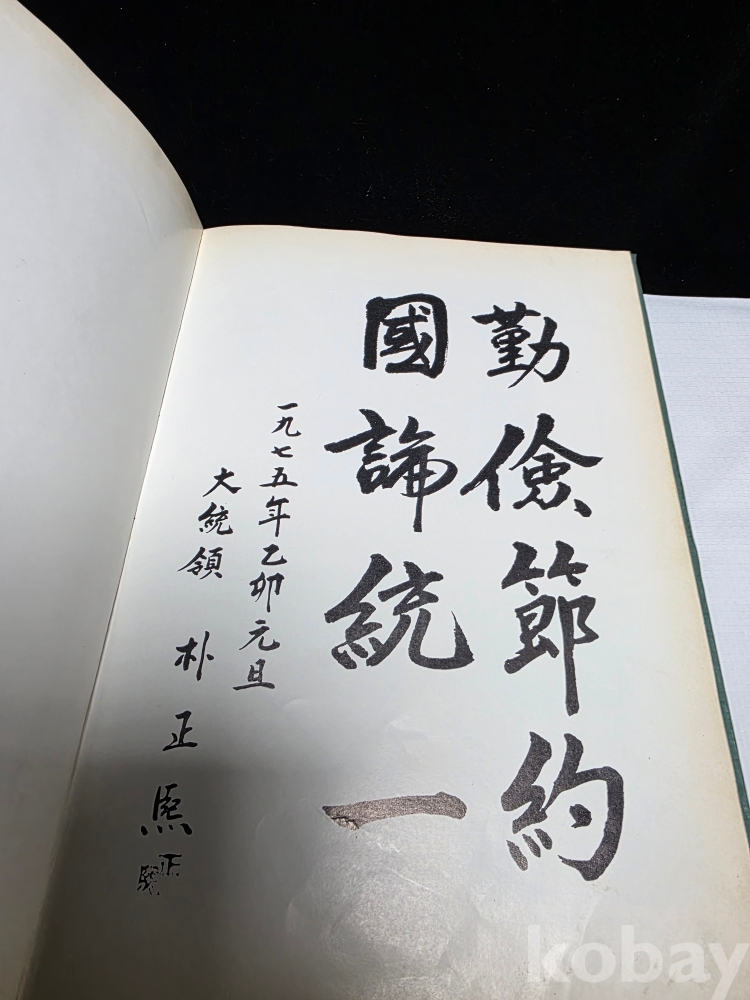 勤儉節約
國論統一
一九七五年乙卯元旦
大統領 朴正熙
kobay